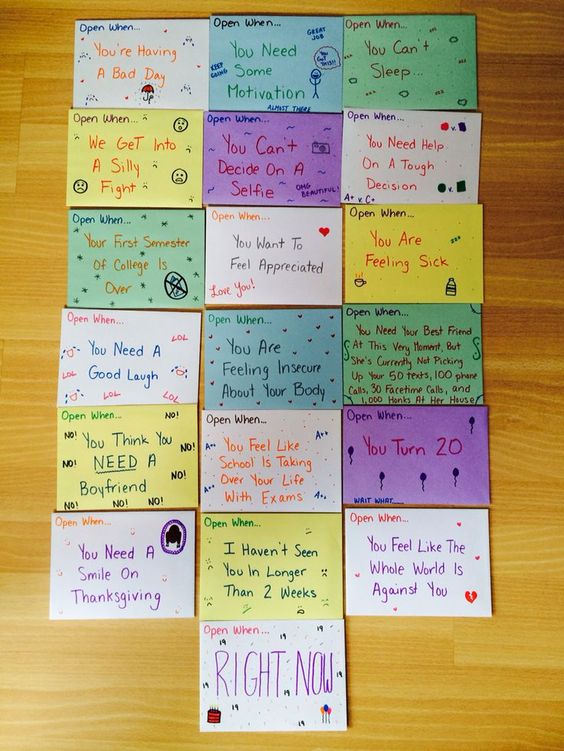 Open When...
You're Having
A Bad Day
Open When...
GREAT
JOB
You Need
KEEP
GOING
YOU
GOT
THIS!!
Some
Motivation
ALMOST THERE
Open When...
You Can't
Sleep...
Open When...
We Get Into
A Silly
Fight
Open When...
You Can't
Decide On A
Selfie
OMG
BEAUTIFUL!
Open When...
v.
You Need Help
On A Tough
Decision
v.
A+ v. C+
Open When...
Your First Semester
Of College Is
Over
Open When...
You Want To
Feel Appreciated
Love You!
Open When...
You Are
Feeling Sick
Open When...
LOL
You Need A
LOL
Good Laugh
LOL
LOL
Open When...
You Are
Feeling Insecure
About Your Body
Open When...
You Need Your Best Friend
At This Very Moment, But
She's Currently Not Picking
Up Your 50 texts, 100 phone
Calls, 30 Facetime Calls, and
1,000 Honks At Her House
Open When...
NO!
NO!
NO!
You Think You
NO!
NO!
NEED A
NO!
Boyfriend
NO!
NO!
NO!
NO!
Open When...
A++
A++
You Feel Like
School Is Taking
Over Your Life
A++
With Exams
A++
Open When...
You Turn 20
WAIT WHAT
Open When...
You Need A
Smile On
Thanksgiving
Open When...
I Haven't Seen
You In Longer
Than 2 Weeks
Open When...
You Feel Like The
Whole World Is
Against You
Open When...
19
19
19
RIGHT NOW
19
19
19
19